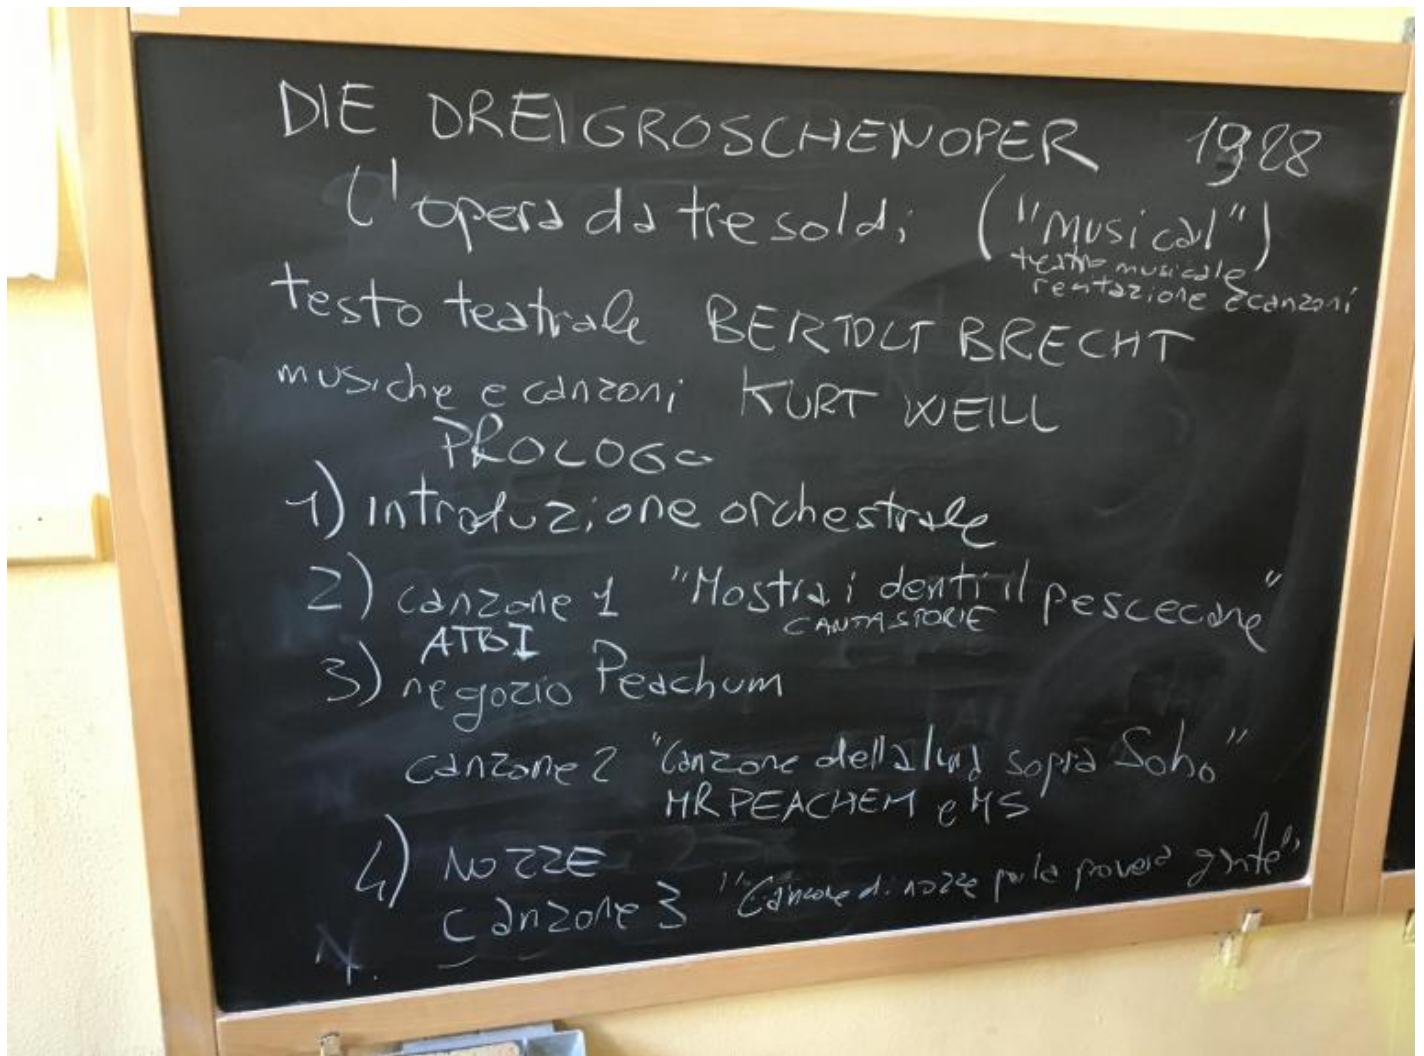 DIE DREIGROSCHENOPER 1928
l'opera da tre soldi ("musical")
teatro musicale
recitazione e canzoni
testo teatrale BERTOLT BRECHT
musiche e canzoni KURT WEILL
PROLOGO
1) introduzione orchestrale
2) canzone 1 "Mostra i denti il pescecane"
CANTASTORIE
ATTO I
3) negozio Peachum
canzone 2 "Canzone della luna sopra Soho"
MR PEACHEM e MS
4) NOZZE
canzone 3 "Canzone di nozze per la povera gente"